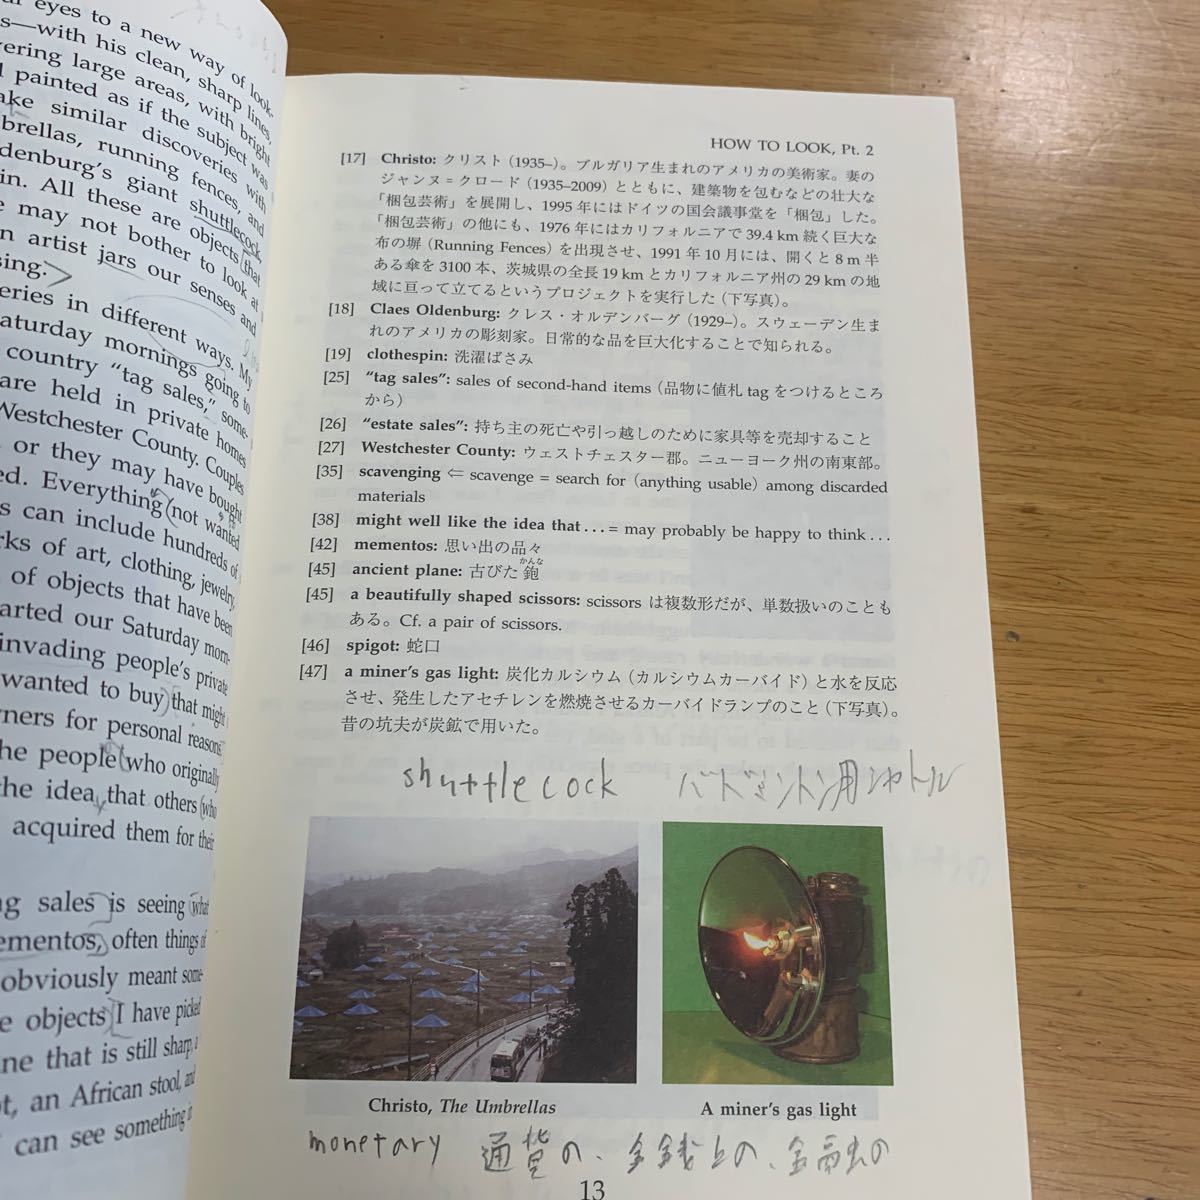 eyes to a new way of look-
—with his clean, sharp lines,
vering large areas, with bright
painted as if the subject was
ake similar discoveries with
brellas, running fences, and
ldenburg's giant shuttlecock
in. All these are objects that
e may not bother to look at
n artist jars our senses and
sing.
eries in different ways. My
aturday mornings going to
country "tag sales," some-
are held in private homes
Westchester County. Couples
or they may have bought
ed. Everything (not wanted
s can include hundreds of
rks of art, clothing, jewelry,
of objects that have been
arted our Saturday morn-
invading people's private
wanted to buy) that might
ners for personal reasons
he people (who originally
the idea, that others (who
acquired them for their
ng sales is seeing what
ementos, often things of
obviously meant some-
e objects I have picked
ne that is still sharp, a
t, an African stool, and
can see something in
HOW TO LOOK, Pt. 2
[17] Christo: クリスト (1935–)。ブルガリア生まれのアメリカの美術家。妻の
ジャンヌ=クロード (1935–2009) とともに、建築物を包むなどの壮大な
「梱包芸術」を展開し、1995 年にはドイツの国会議事堂を「梱包」した。
「梱包芸術」の他にも、1976 年にはカリフォルニアで 39.4 km 続く巨大な
布の塀 (Running Fences) を出現させ、1991 年 10 月には、開くと 8 m 半
ある傘を 3100 本、茨城県の全長 19 km とカリフォルニア州の 29 km の地
域に亘って立てるというプロジェクトを実行した (下写真)。
[18] Claes Oldenburg: クレス・オルデンバーグ (1929–)。スウェーデン生ま
れのアメリカの彫刻家。日常的な品を巨大化することで知られる。
[19] clothespin: 洗濯ばさみ
[25] "tag sales": sales of second-hand items (品物に値札 tag をつけるところ
から)
[26] "estate sales": 持ち主の死亡や引っ越しのために家具等を売却すること
[27] Westchester County: ウェストチェスター郡。ニューヨーク州の南東部。
[35] scavenging ⇐ scavenge = search for (anything usable) among discarded
materials
[38] might well like the idea that . . . = may probably be happy to think . . .
[42] mementos: 思い出の品々
かんな
[45] ancient plane: 古びた 鉋
[45] a beautifully shaped scissors: scissors は複数形だが、単数扱いのことも
ある。Cf. a pair of scissors.
[46] spigot: 蛇口
[47] a miner's gas light: 炭化カルシウム (カルシウムカーバイド) と水を反応
させ、発生したアセチレンを燃焼させるカーバイドランプのこと (下写真)。
昔の坑夫が炭鉱で用いた。
shuttlecock バドミントン用シャトル
Christo, The Umbrellas
A miner's gas light
monetary 通貨の、金銭上の、金融の
13